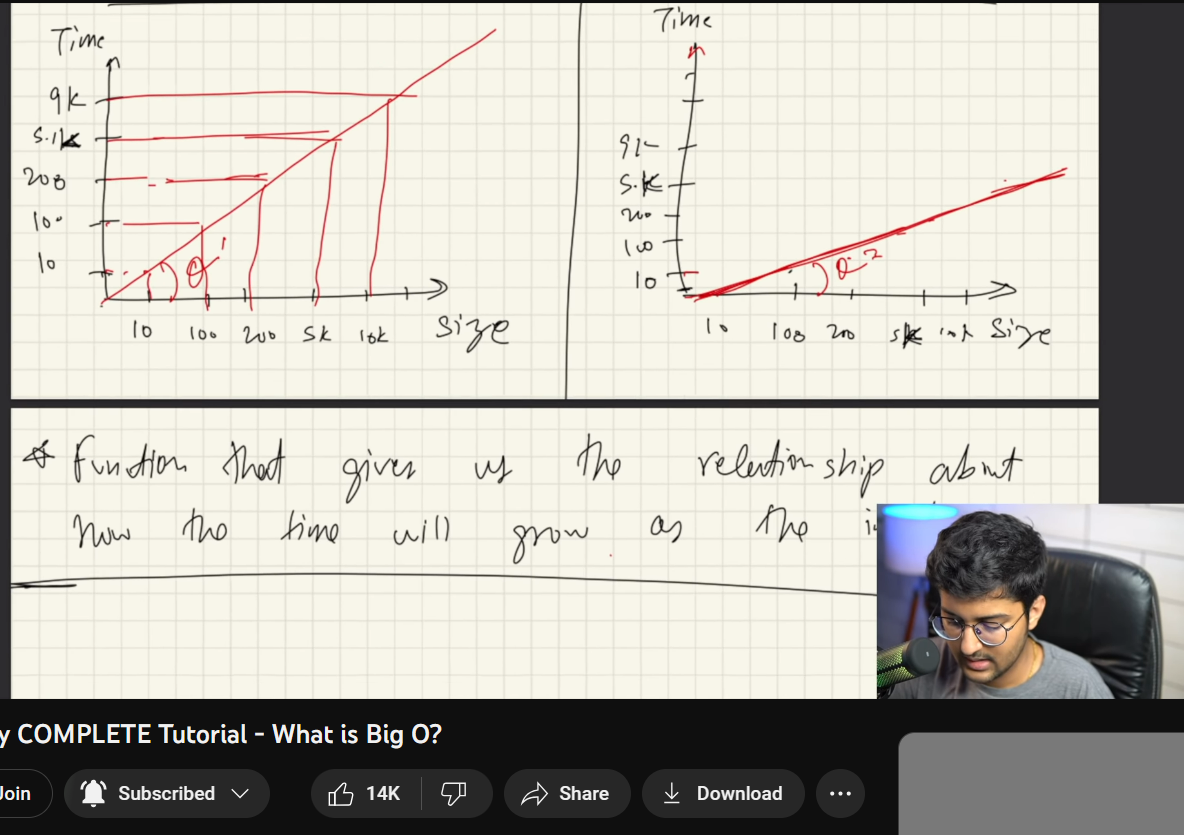 Time
9k
5.1k
200
100
10
10 100 200 5k 10k Size
Time
9k
5.k
200
100
10
10 100 200 5k 10k Size
θ1
θ2
* Function that gives us the relationship about
how the time will grow as the
y COMPLETE Tutorial - What is Big O?
Join
Subscribed
14K
Share
Download